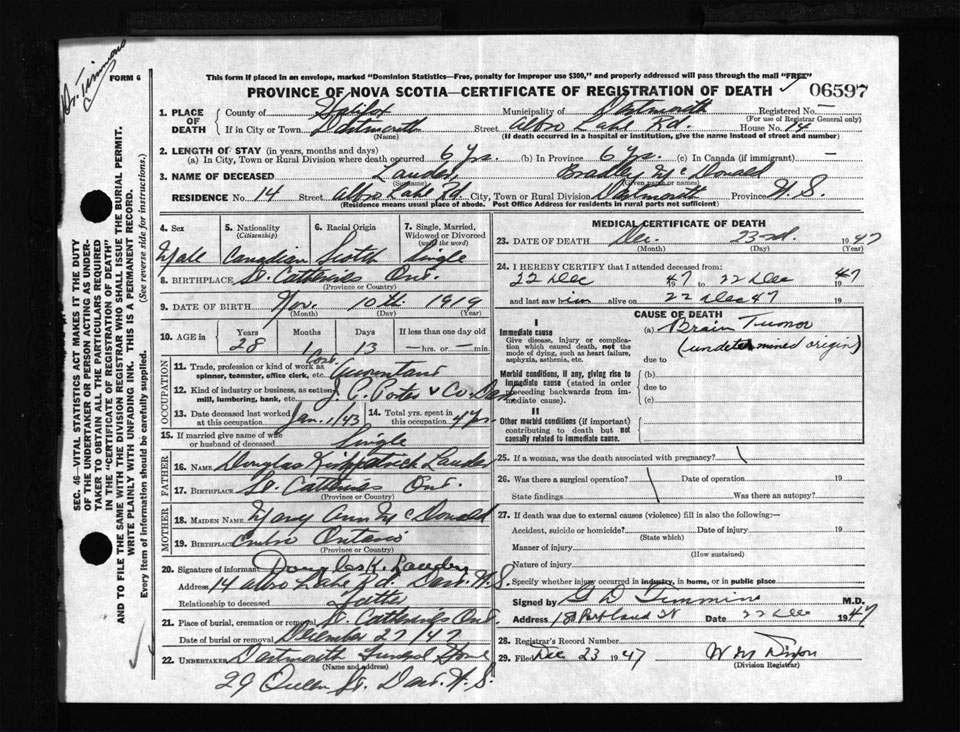 Dr. Timmons
FORM 6
This form if placed in an envelope, marked "Dominion Statistics—Free, penalty for improper use $300," and properly addressed will pass through the mail "FREE"
PROVINCE OF NOVA SCOTIA—CERTIFICATE OF REGISTRATION OF DEATH 06597
1. PLACE OF DEATH County of Halifax Municipality of Dartmouth Registered No. —
(For use of Registrar General only)
If in City or Town Dartmouth Street Albro Lake Rd. House No. 14
(Name) (If death occurred in a hospital or institution, give the name instead of street and number)
2. LENGTH OF STAY (in years, months and days)
(a) In City, Town or Rural Division where death occurred 6 Yrs. (b) In Province 6 Yrs. (c) In Canada (if immigrant) —
3. NAME OF DECEASED Lauder, Bradley McDonald
(Surname) (Given name or names)
RESIDENCE No. 14 Street Albro Lake Rd. City, Town or Rural Division Dartmouth Province N.S.
(Residence means usual place of abode. Post Office Address for residents in rural parts not sufficient)
4. Sex 5. Nationality (Citizenship) 6. Racial Origin 7. Single, Married, Widowed or Divorced (write the word)
Male Canadian Scotch Single
8. BIRTHPLACE St. Catherines Ont.
(Province or Country)
9. DATE OF BIRTH Nov. 10th 1919
(Month) (Day) (Year)
10. AGE in Years Months Days If less than one day old
28 1 13 — hrs. or — min.
OCCUPATION
11. Trade, profession or kind of work as spinner, teamster, office clerk, etc. Cost Accountant
12. Kind of industry or business, as cotton mill, lumbering, bank, etc. J. C. Porter & Co. Dart
13. Date deceased last worked at this occupation Jan. 1/43 14. Total yrs. spent in this occupation 4 Yrs
15. If married give name of wife or husband of deceased Single
FATHER
16. NAME Douglas Kirkpatrick Lauder
17. BIRTHPLACE St. Catherines Ont.
(Province or Country)
MOTHER
18. MAIDEN NAME Mary Ann McDonald
19. BIRTHPLACE Embro Ontario
(Province or Country)
20. Signature of informant Douglas K. Lauder
Address 14 Albro Lake Rd. Dart. N.S.
Relationship to deceased Father
21. Place of burial, cremation or removal St. Catherines Ont.
Date of burial or removal December 27/47
22. UNDERTAKER Dartmouth Funeral Home
(Name and address)
29 Queen St. Dart. N.S.
MEDICAL CERTIFICATE OF DEATH
23. DATE OF DEATH Dec. 23rd. 1947
(Month) (Day)
24. I HEREBY CERTIFY that I attended deceased from:
22 Dec 1947 to 22 Dec 1947
and last saw him alive on 22 Dec 47 19
CAUSE OF DEATH
I
Immediate cause (a) Brain Tumor
Give disease, injury or complication which caused death, not the mode of dying, such as heart failure, asphyxia, asthenia, etc.
(undetermined origin)
due to
Morbid conditions, if any, giving rise to immediate cause (stated in order proceeding backwards from immediate cause).
(b)
due to
(c)
II
Other morbid conditions (if important) contributing to death but not causally related to immediate cause.
25. If a woman, was the death associated with pregnancy?
26. Was there a surgical operation? Date of operation 19
State findings Was there an autopsy?
27. If death was due to external causes (violence) fill in also the following:—
Accident, suicide or homicide? Date of injury 19
(State which)
Manner of injury
(How sustained)
Nature of injury
Specify whether injury occurred in industry, in home, or in public place
Signed by G D Timmins M.D.
Address Portland St Date 22 Dec 1947
28. Registrar's Record Number
29. Filed Dec 23 1947 W M Dixon
(Division Registrar)
SEC. 46—VITAL STATISTICS ACT MAKES IT THE DUTY
OF THE UNDERTAKER OR PERSON ACTING AS UNDERTAKER TO OBTAIN ALL THE PARTICULARS REQUIRED
IN THE "CERTIFICATE OF REGISTRATION OF DEATH"
AND TO FILE THE SAME WITH THE DIVISION REGISTRAR WHO SHALL ISSUE THE BURIAL PERMIT.
WRITE PLAINLY WITH UNFADING INK. THIS IS A PERMANENT RECORD.
Every item of information should be carefully supplied. (See reverse side for instructions.)